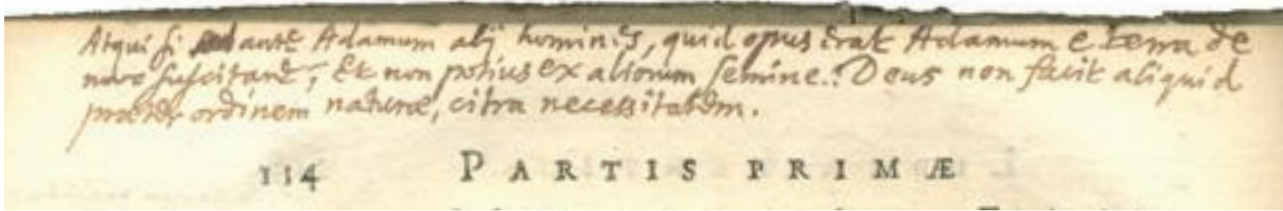 Atqui si ante Adamum alij homines, quid opus erat Adamum e terra de
novo suscitare, Et non potius ex aliorum semine? Deus non facit aliquid
præter ordinem naturæ, citra necessitatem.
114 PARTIS PRIMÆ